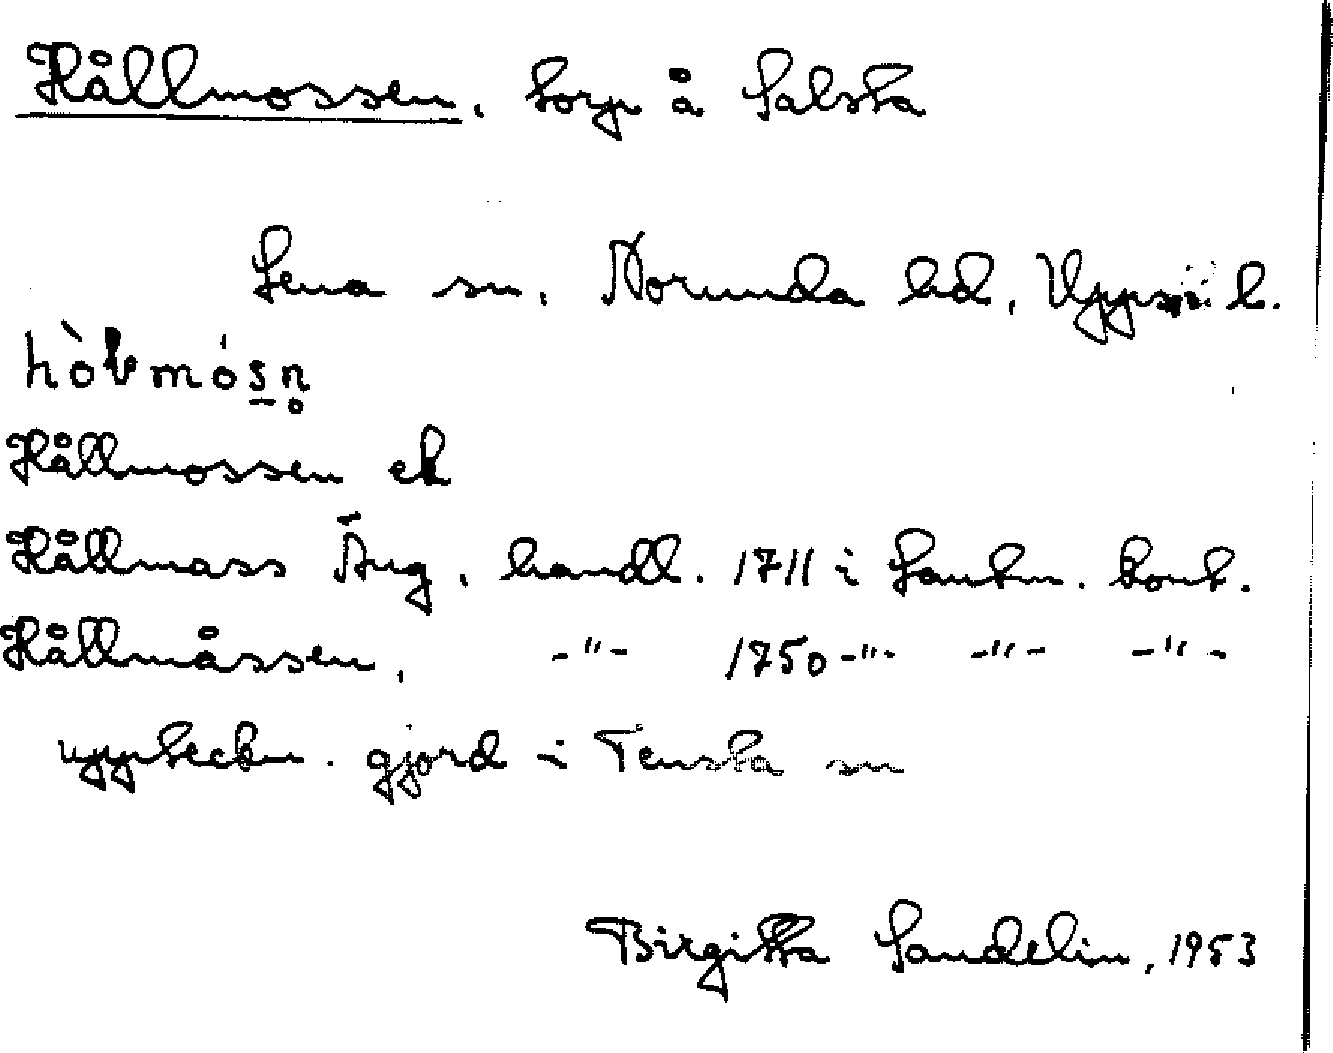 Hållmossen, torp å Salsta
Lena sn, Norunda hd, Uppsala l.
hò̀lmósn̥
Hållmossen ek
Hållmass Äng, handl. 1711 i Lantm. kont.
Hållmåssen, -"- 1750 -"- -"- -"-
uppteckn. gjord i Tensta sn
Birgitta Sandelin, 1953